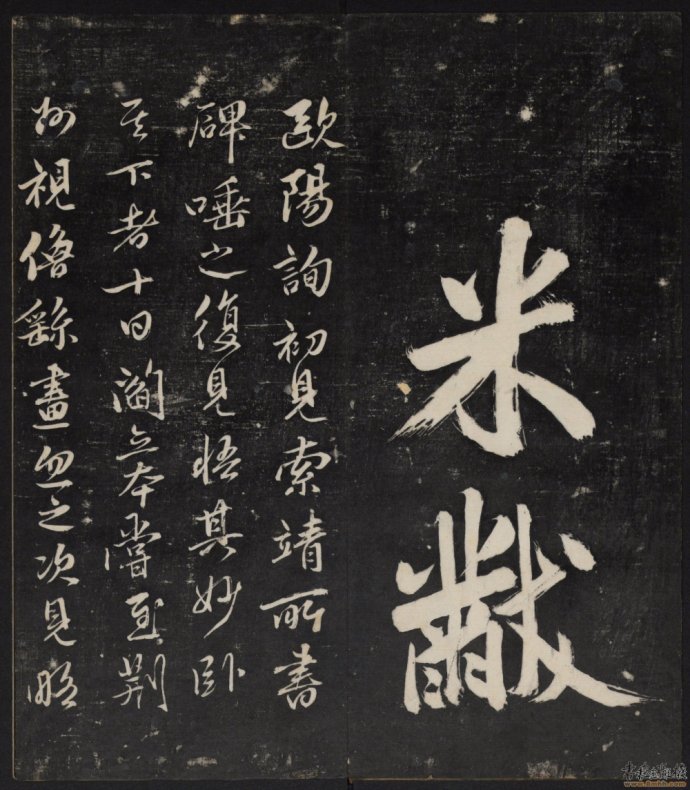 米
黻
歐陽詢初見索靖所書
碑唾之復見悟其妙卧
其下者十日閻立本嘗至荆
州視僧繇畫忽之次見略